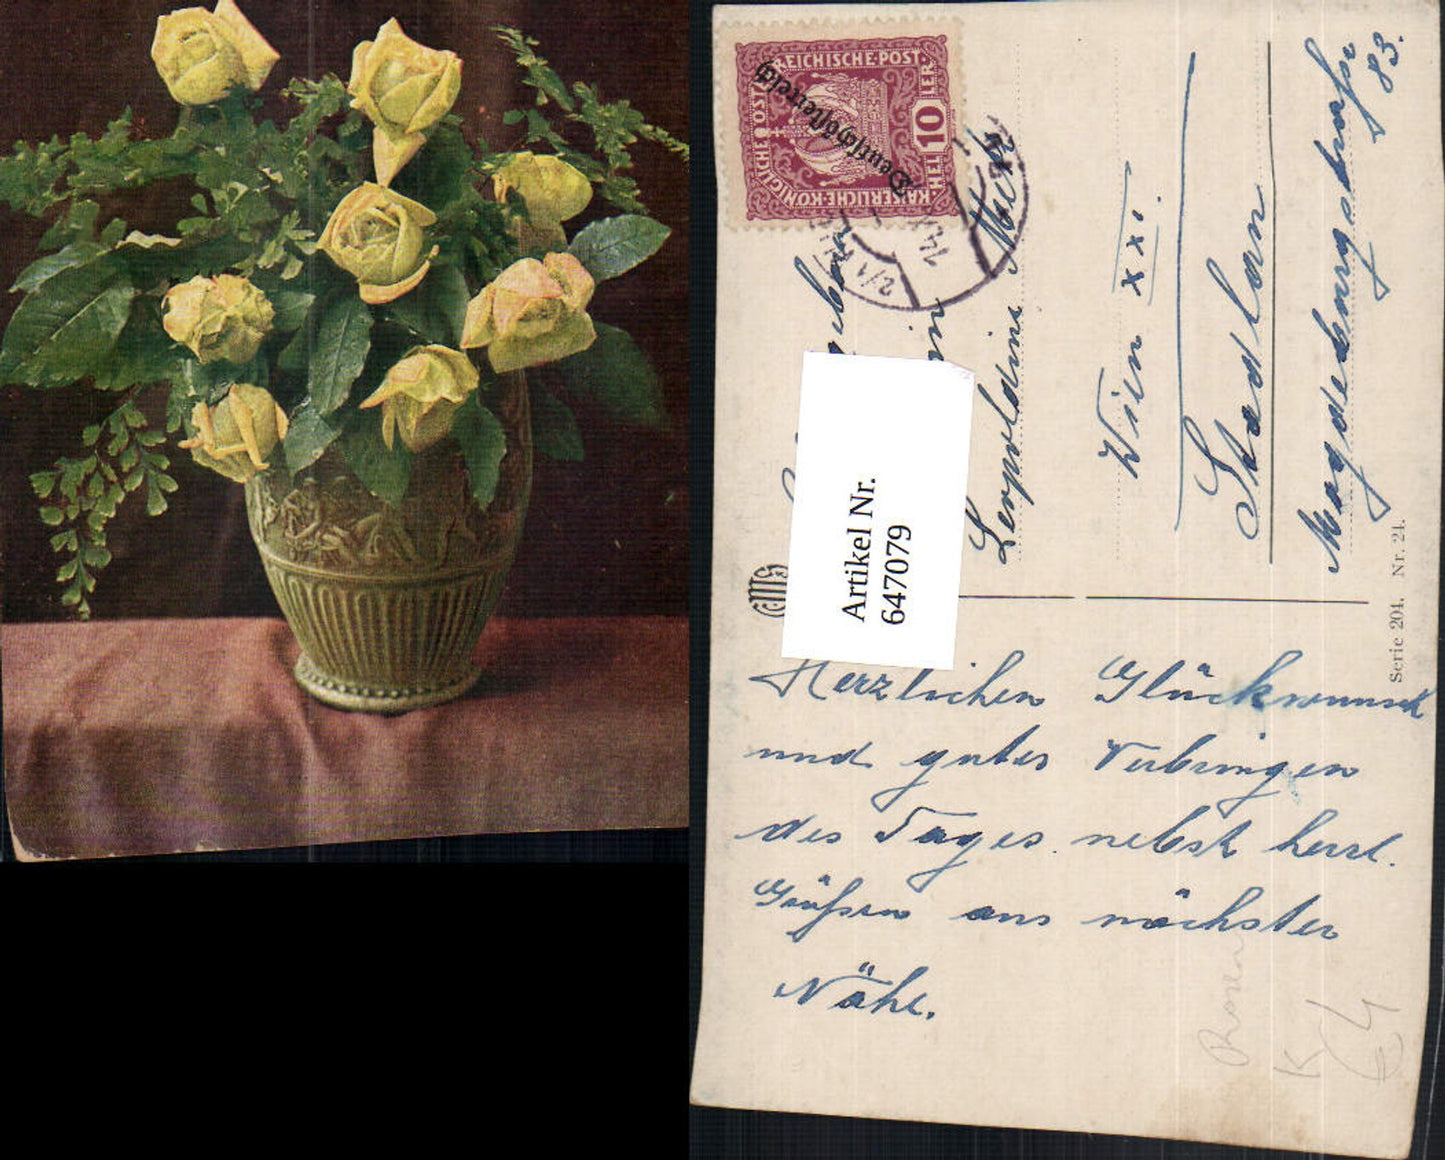 KAISERLICHE·KÖNIGLICHE ÖSTERREICHISCHE·POST·
10 HELLER
Deutschösterreich
Artikel Nr.
647079
Leopoldine
Wien XXI.
Stadlau
Magdeburgstraße
83.
Serie 204. Nr. 24.
Herzlichen Glückwunsch
und gutes Verbringen
des Tages nebst herzl.
Grüßen aus nächster
Nähe.
Rosen
K
€4